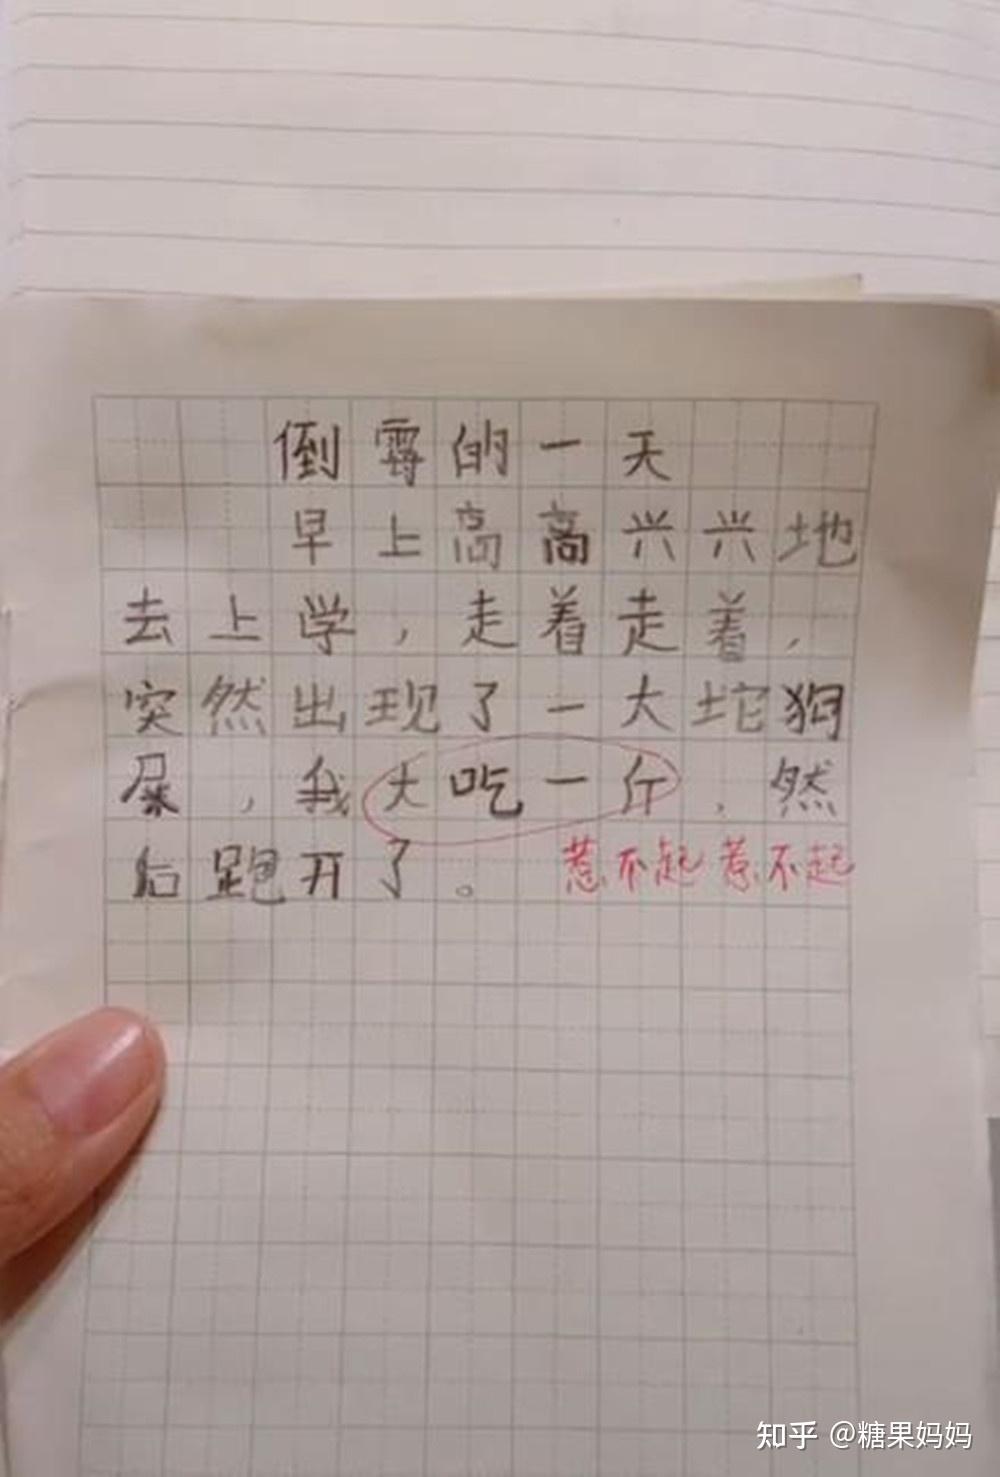 倒霉的一天
早上高高兴兴地
去上学，走着走着，
突然出现了一大坨狗
屎，我大吃一斤，然
后跑开了。
惹不起惹不起
知乎 @糖果妈妈